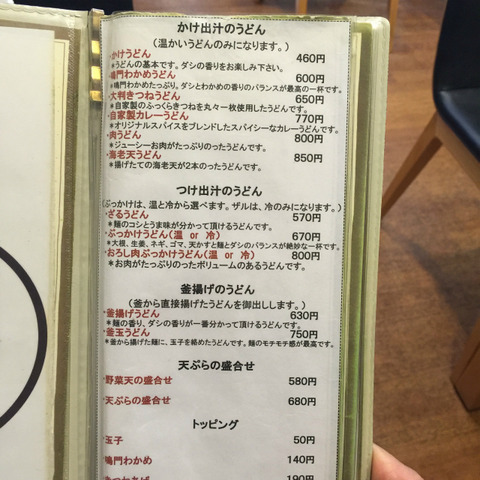 かけ出汁のうどん
（温かいうどんのみになります。）
・かけうどん 460円
＊うどんの基本です。ダシの香りをお楽しみ下さい。
・鳴門わかめうどん 600円
＊鳴門わかめたっぷり。ダシとわかめの香りのバランスが最高の一杯です。
・大判きつねうどん 650円
＊自家製のふっくらきつねを丸々一枚使用したうどんです。
・自家製カレーうどん 770円
＊オリジナルスパイスをブレンドしたスパイシーなカレーうどんです。
・肉うどん 800円
＊ジューシーお肉がたっぷりのったうどんです。
・海老天うどん 850円
＊揚げたての海老天が2本のったうどんです。
つけ出汁のうどん
（ぶっかけは、温と冷から選べます。ザルは、冷のみになります。）
・ざるうどん 570円
＊麺のコシとうま味が分かって頂けるうどんです。
・ぶっかけうどん（温 or 冷） 670円
＊大根、生姜、ネギ、ゴマ、天かすと麺とダシのバランスが絶妙な一杯です。
・おろし肉ぶっかけうどん（温 or 冷） 800円
＊お肉がたっぷりのったボリュームのあるうどんです。
釜揚げのうどん
（釜から直接揚げたうどんを御出しします。）
・釜揚げうどん 630円
＊麺の香り、ダシの香りが一番分かって頂けるうどんです。
・釜玉うどん 750円
＊釜から揚げた麺に、玉子を絡めたうどんです。麺のモチモチ感が最高です。
天ぷらの盛合せ
・野菜天の盛合せ 580円
・天ぷらの盛合せ 680円
トッピング
・玉子 50円
・鳴門わかめ 140円
・きつねあげ 190円